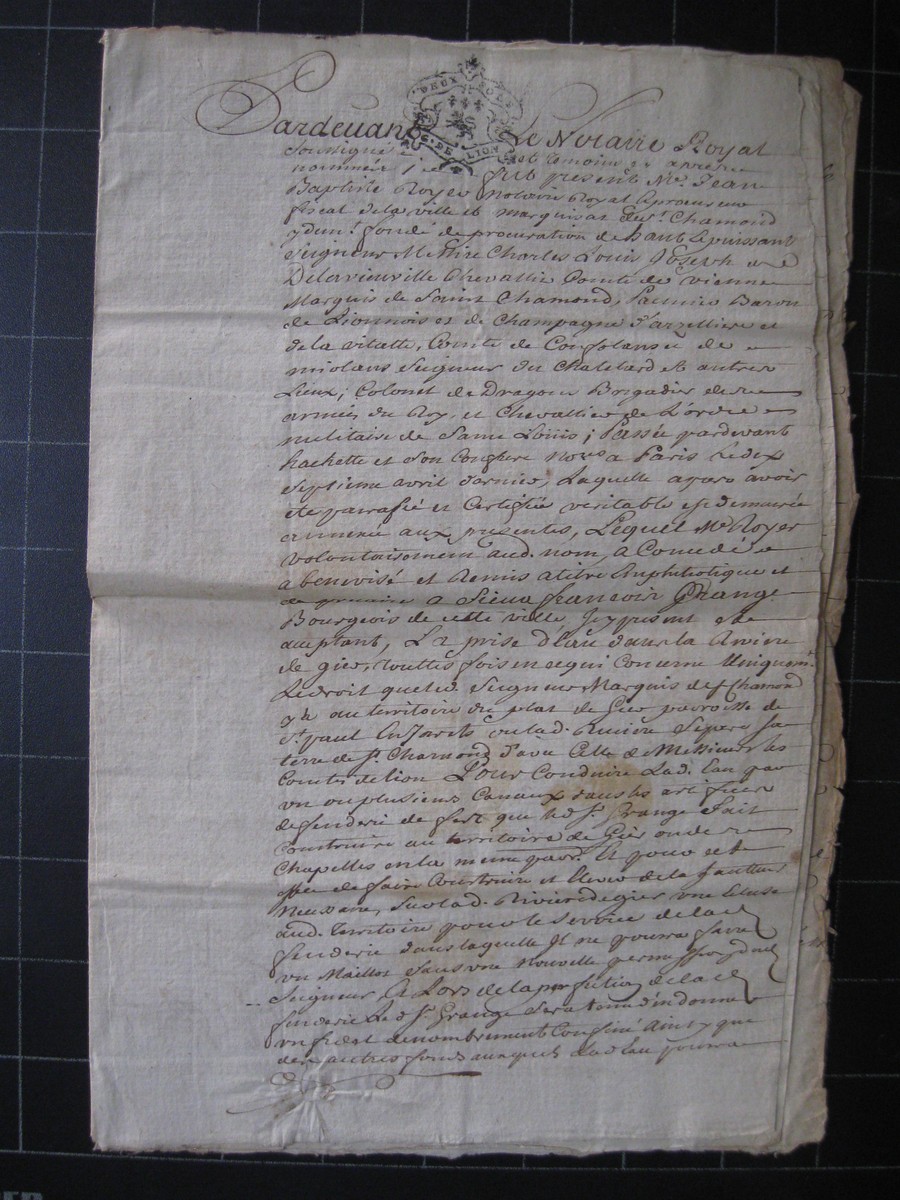 DEUX SOLS
G. DE LION
Pardevant Le Notaire Royal
Soussigné et temoins cy apres
nommés fut present Me. Jean
Baptiste Royer notaire Royal & procureur
fiscal de la ville et marquisat de St. Chamond
fondé de procuration de haut & puissant
Seigneur Messire Charles Louis Joseph
Delavieuville Chevallier Comte de vienne
Marquis de Saint Chamond, Premier Baron
de Lionnois et de Champagne d'arzelliere et
de la vitatte, Comte de Confolans de
miolans Seigneur du Chatelard & autres
Lieux; Colonel de Dragons Brigadier des
armées du Roy, et Chevallier de L'ordre
militaire de Saint Loüis; Passée pardevant
hachette et Son Confrere Nores a Paris Le dix
Septieme avril dernier, Laquelle apres avoir
été parafié et Certifiée veritable est demeurée
annexée aux presentes, Lequel Me Royer
volontairement aud. nom, a Concedé
abenevisé et Remis a titre Emphiteotique et
a Sieur francois Grange
Bourgeois de cette ville, Icy present et
acceptant, La prise d'Eau dans la Riviere
de gier, touttes fois en ce qui Concerne Uniquemt.
Le droit que led. Seigneur Marquis de St Chamond
a au territoire du plat de Gier parroisse de
St. paul En Jarêts ou lad. Riviere Separe Sa
terre de St. Chamond d'avec Celle de Messieurs les
Comtes de Lion Pour Conduire Lad. Eau par
un ou plusieurs Canaux dans les artifices
de fenderie de fert que led Sr. Grange fait
Construire au territoire de Giés ou des
Chapelles en la meme parr. Et pour cet
effet de faire Construire et Elever de la hautteur
Necessaire, Sur lad. Riviere de gier une Ecluse
aud. Territoire pour le Service de lad
fenderie dans laquelle Il ne pourra faire
un Maillot Sans une Nouvelle permission dud.
Seigneur, & Lors de la perfection de lad
fenderie Led Sr. Grange Sera tenu d'en donner
un fidel denombrement Confiné Ainsy que
des autres fonds auxquels lad. Eau pourra